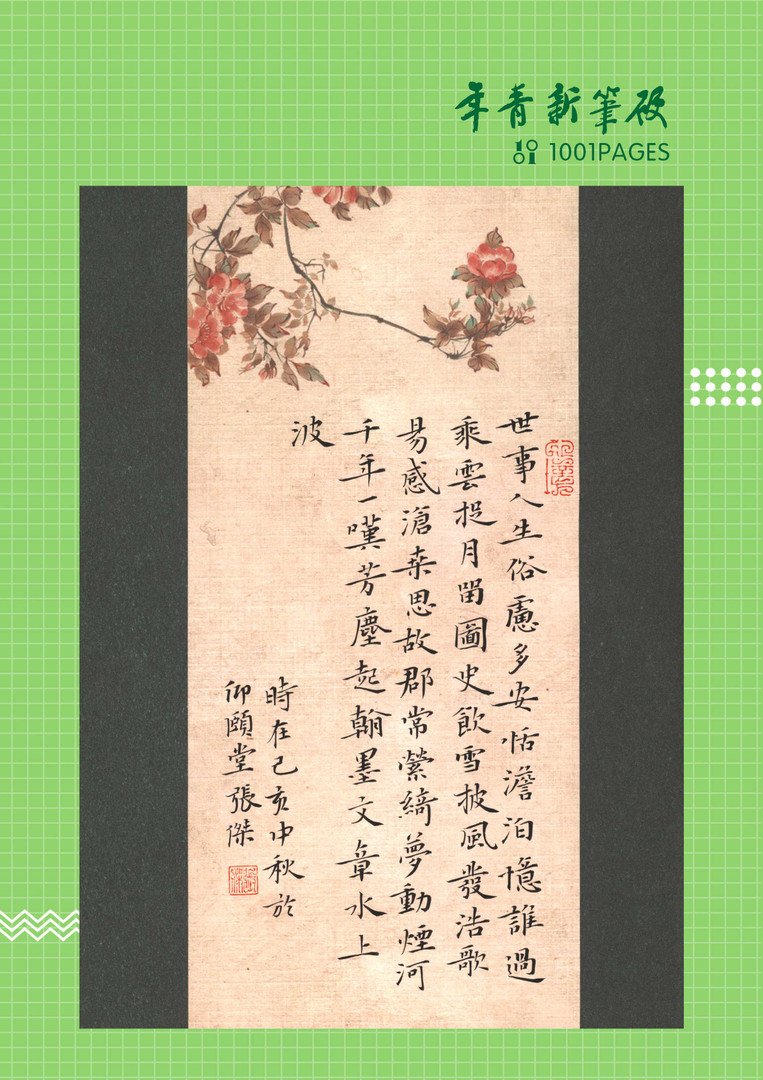 年青新筆
1001PAGES
世事人生俗慮多安恬澹泊憶誰過
乘雲捉月留圖史飲雪披風發浩歌
易感滄桑思故郡常縈綺夢動煙河
千年一嘆芳塵起翰墨文章水上
波
時在己亥中秋於
仰頤堂張傑